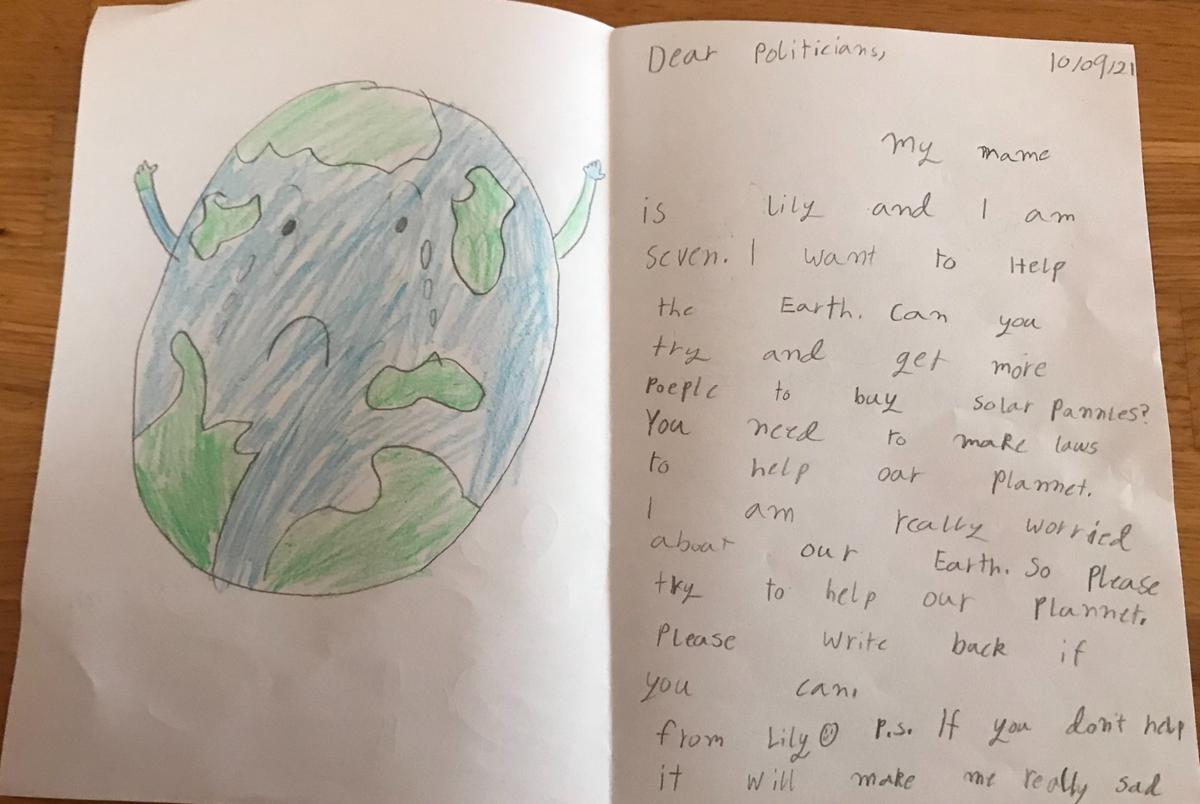 Dear Politicians,
10/09/21
My mame
is Lily and I am
seven. I want to Help
the Earth. Can you
try and get more
Poeple to buy solar Pannles?
You need to make laws
to help oar plannet.
I am really worried
about our Earth. So Please
try to help our Plannet.
Please write back if
you can.
from Lily P.S. If you don't help
it will make me really sad